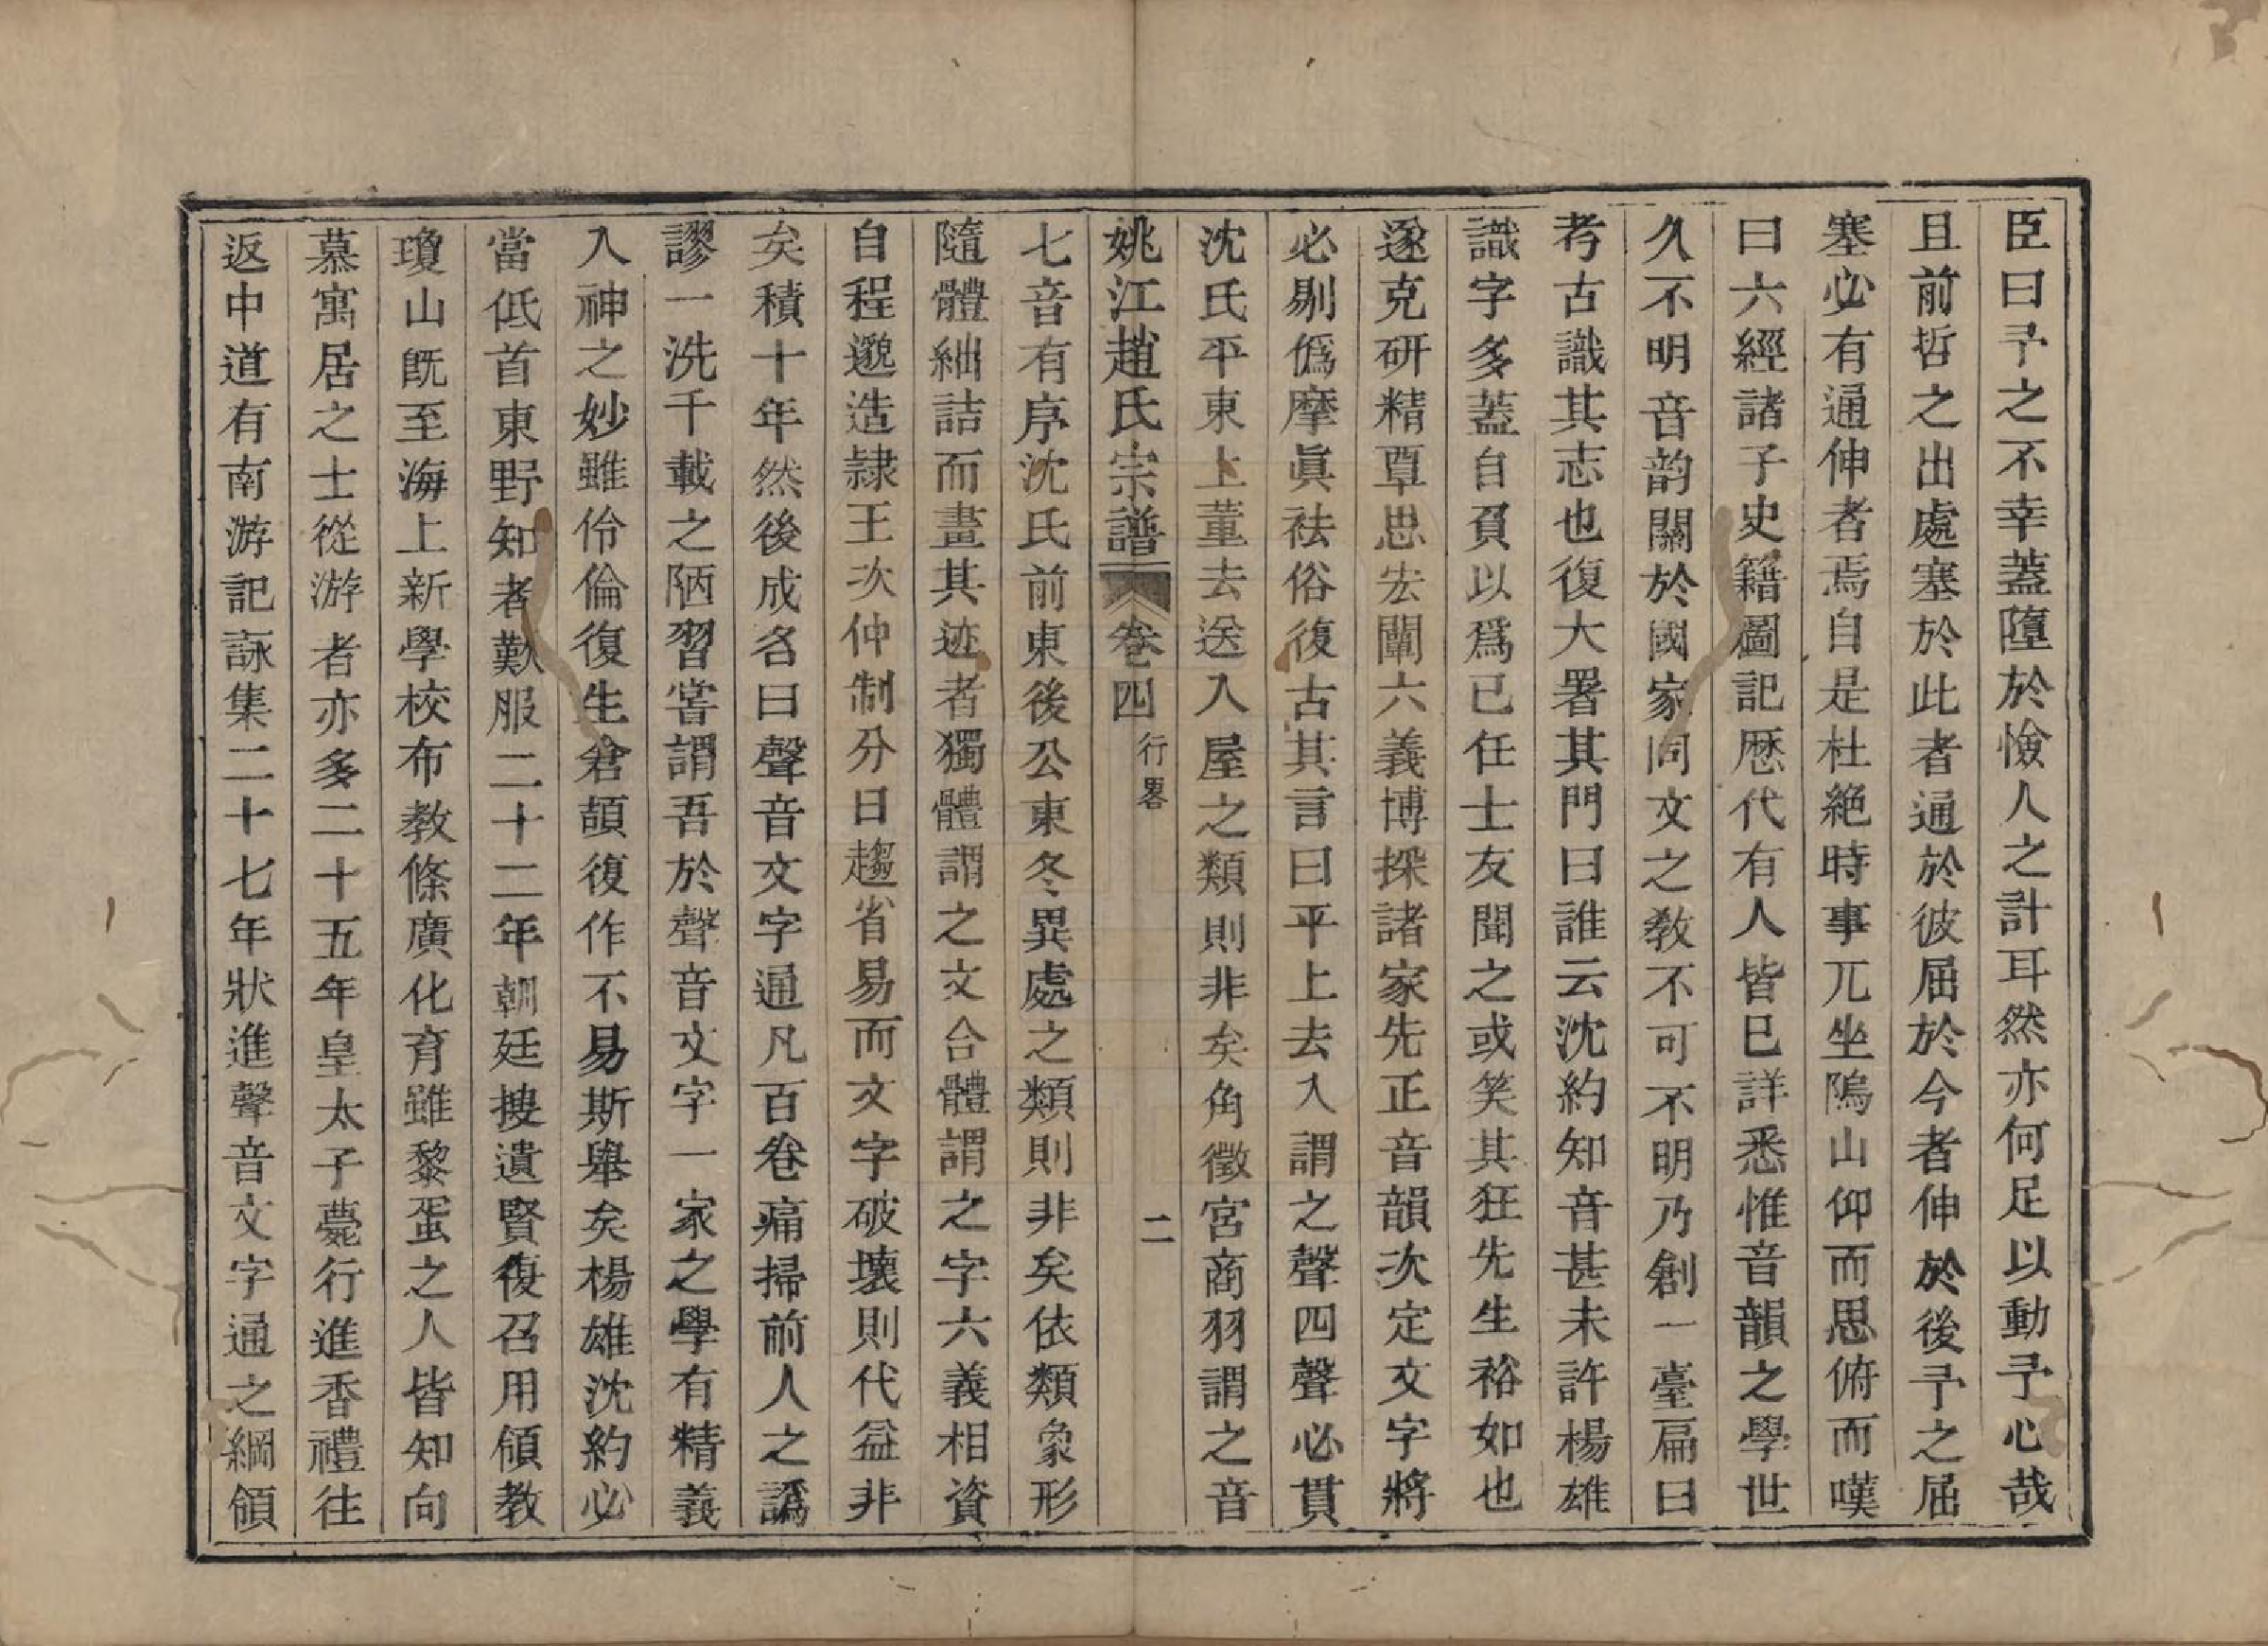 臣曰予之不幸蓋墮於憸人之計耳然亦何足以動予心哉
且前哲之出處塞於此者通於彼屈於今者伸於後予之屈
塞必有通伸者焉自是杜絕時事兀坐隖山仰而思俯而嘆
曰六經諸子史籍圖記歷代有人皆已詳悉惟音韻之學世
久不明音韵關於國家同文之敎不可不明乃創一臺扁曰
考古識其志也復大署其門曰誰云沈約知音甚未許楊雄
識字多蓋自負以爲已任士友聞之或笑其狂先生裕如也
遂克研精覃思宏闡六義博探諸家先正音韻次定文字將
必剔僞摩眞袪俗復古其言曰平上去入謂之聲四聲必貫
沈氏平東上董去送入屋之類則非矣角徵宮商羽謂之音
姚江趙氏宗譜 卷四 行畧 二
七音有序沈氏前東後公東冬異處之類則非矣依類象形
隨體絀詰而畫其迹者獨體謂之文合體謂之字六義相資
自程邈造隷王次仲制分日趨省易而文字破壞則代益非
矣積十年然後成名曰聲音文字通凡百卷痛掃前人之譌
謬一洗千載之陋習嘗謂吾於聲音文字一家之學有精義
入神之妙雖伶倫復生倉頡復作不易斯舉矣楊雄沈約必
當低首東野知者歎服二十二年朝廷搜遺賢復召用領教
瓊山旣至海上新學校布教條廣化育雖黎蛋之人皆知向
慕寓居之士從游者亦多二十五年皇太子薨行進香禮往
返中道有南游記詠集二十七年狀進聲音文字通之綱領